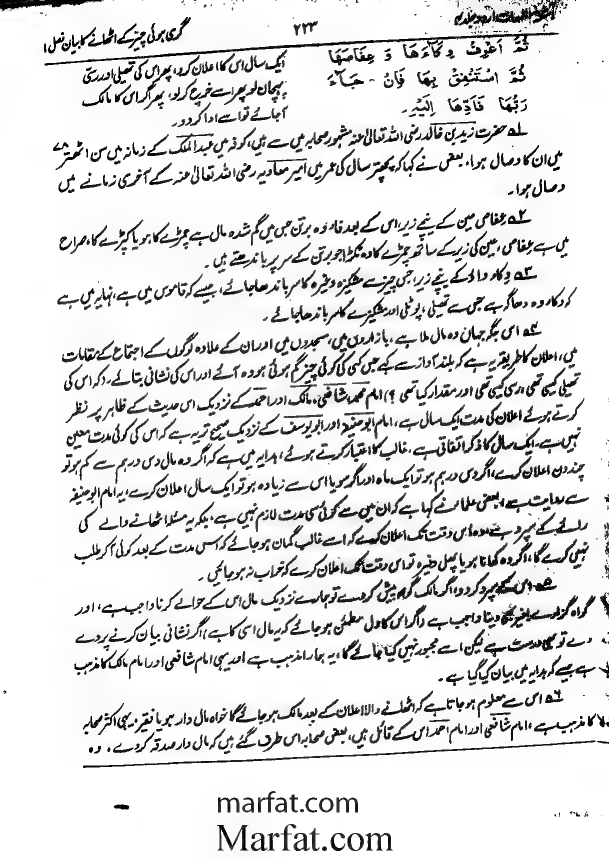 گری ہوئی چیز کے اٹھانے کا بیان فصل ۱
۲۲۳
ثُمَّ اعْرِفْ وِكَاءَهَا وَ عِفَاصَهَا
ثُمَّ اسْتَنْفِقْ بِهَا فَإِنْ جَاءَ
رَبُّهَا فَأَدِّهَا إِلَيْهِ۔
ایک سال اس کا اعلان کرو، پھر اس کی تھیلی اور رسّی
پہچان لو پھر اسے خرچ کر لو، پھر اگر اس کا مالک
آجائے تو اسے ادا کر دو۔
۱ے حضرت زید بن خالد رضی اللہ تعالیٰ عنہ مشہور صحابہ میں سے ہیں، کوفہ میں عبدالملک کے زمانہ میں سن اٹھتر ۷۸
میں ان کا وصال ہوا، بعض نے کہا کہ پچھتر سال کی عمر میں امیر معاویہ رضی اللہ تعالیٰ عنہ کے آخری زمانے میں
وصال ہوا۔
۲ے عفاص عین کے نیچے زیر، اس کے بعد فاء، وہ برتن جس میں گم شدہ مال ہے چمڑے کا ہو یا کپڑے کا، صراح
میں ہے عفاص، عین کی زیر کے ساتھ چمڑے کا وہ ٹکڑا جو برتن کے سر پر باندھتے ہیں۔
۳ے وکاء واؤ کے نیچے زیر، جس چیز سے مشکیزہ وغیرہ کا سر باندھا جائے، جیسے کہ قاموس میں ہے، نہایہ میں ہے
کہ وکاء وہ دھاگہ ہے جس سے تھیلی، پوٹلی اور مشکیزے کا سر باندھا جائے۔
۴ے اس جگہ جہاں وہ مال ملا ہے، بازاروں میں، مسجدوں میں اور ان کے علاوہ لوگوں کے اجتماع کے مقامات
میں، اعلان کا طریقہ یہ ہے کہ بلند آواز سے کہے جس کسی کی کوئی چیز گم ہوئی ہو وہ آئے اور اس کی نشانی بتائے۔ (کہ اس کی
تھیلی کیسی تھی، رسی کیسی تھی اور مقدار کیا تھی؟) امام محمد، شافعی، مالک اور احمد کے نزدیک اس حدیث کے ظاہر پر نظر
کرتے ہوئے اعلان کی مدت ایک سال ہے، امام ابوحنیفہ اور ابو یوسف کے نزدیک صحیح تر یہ ہے کہ اس کی کوئی مدت معین
نہیں ہے، ایک سال کا ذکر اتفاقی ہے، غالب کا اعتبار کرتے ہوئے، ہدایہ میں ہے کہ اگر وہ مال دس درہم سے کم ہو تو
چند دن اعلان کرے، اگر دس درہم ہو تو ایک ماہ اور اگر سو یا اس سے زیادہ ہو تو ایک سال اعلان کرے، یہ امام ابو حنیفہ
سے روایت ہے، بعض علماء نے کہا ہے کہ ان میں سے کوئی بھی مدت لازم نہیں ہے، بلکہ یہ مسئلہ اٹھانے والے کی
رائے کے سپرد ہے، وہ اس وقت تک اعلان کرے کہ اسے غالب گمان ہو جائے کہ اس مدت کے بعد کوئی آکر طلب
نہیں کرے گا، اگر وہ کھانا ہو یا پھل وغیرہ تو اس وقت تک اعلان کرے کہ خراب نہ ہو جائیں۔
۵ے اس کے سپرد کر دو، اگر مالک گواہ پیش کر دے تو ہمارے نزدیک مال اس کے حوالے کرنا واجب ہے، اور
گواہ گزارے بغیر دینا واجب ہے اگر اس کا دل مطمئن ہو جائے کہ یہ مال اسی کا ہے، اگر نشانی بیان کرنے پر دے
دے تو بھی درست ہے لیکن اسے مجبور نہیں کیا جائے گا، یہ ہمارا مذہب ہے اور یہی امام شافعی اور امام مالک کا مذہب
ہے جیسے کہ ہدایہ میں بیان کیا گیا ہے۔
۶ے اس سے معلوم ہو جاتا ہے کہ اٹھانے والا اعلان کے بعد مالک ہو جائے گا خواہ مال دار ہو یا فقیر، یہی اکثر صحابہ
کا مذہب ہے، امام شافعی اور امام احمد اس کے قائل ہیں، بعض صحابہ اس طرف گئے ہیں کہ مال دار صدقہ کر دے، وہ
marfat.com
Marfat.com